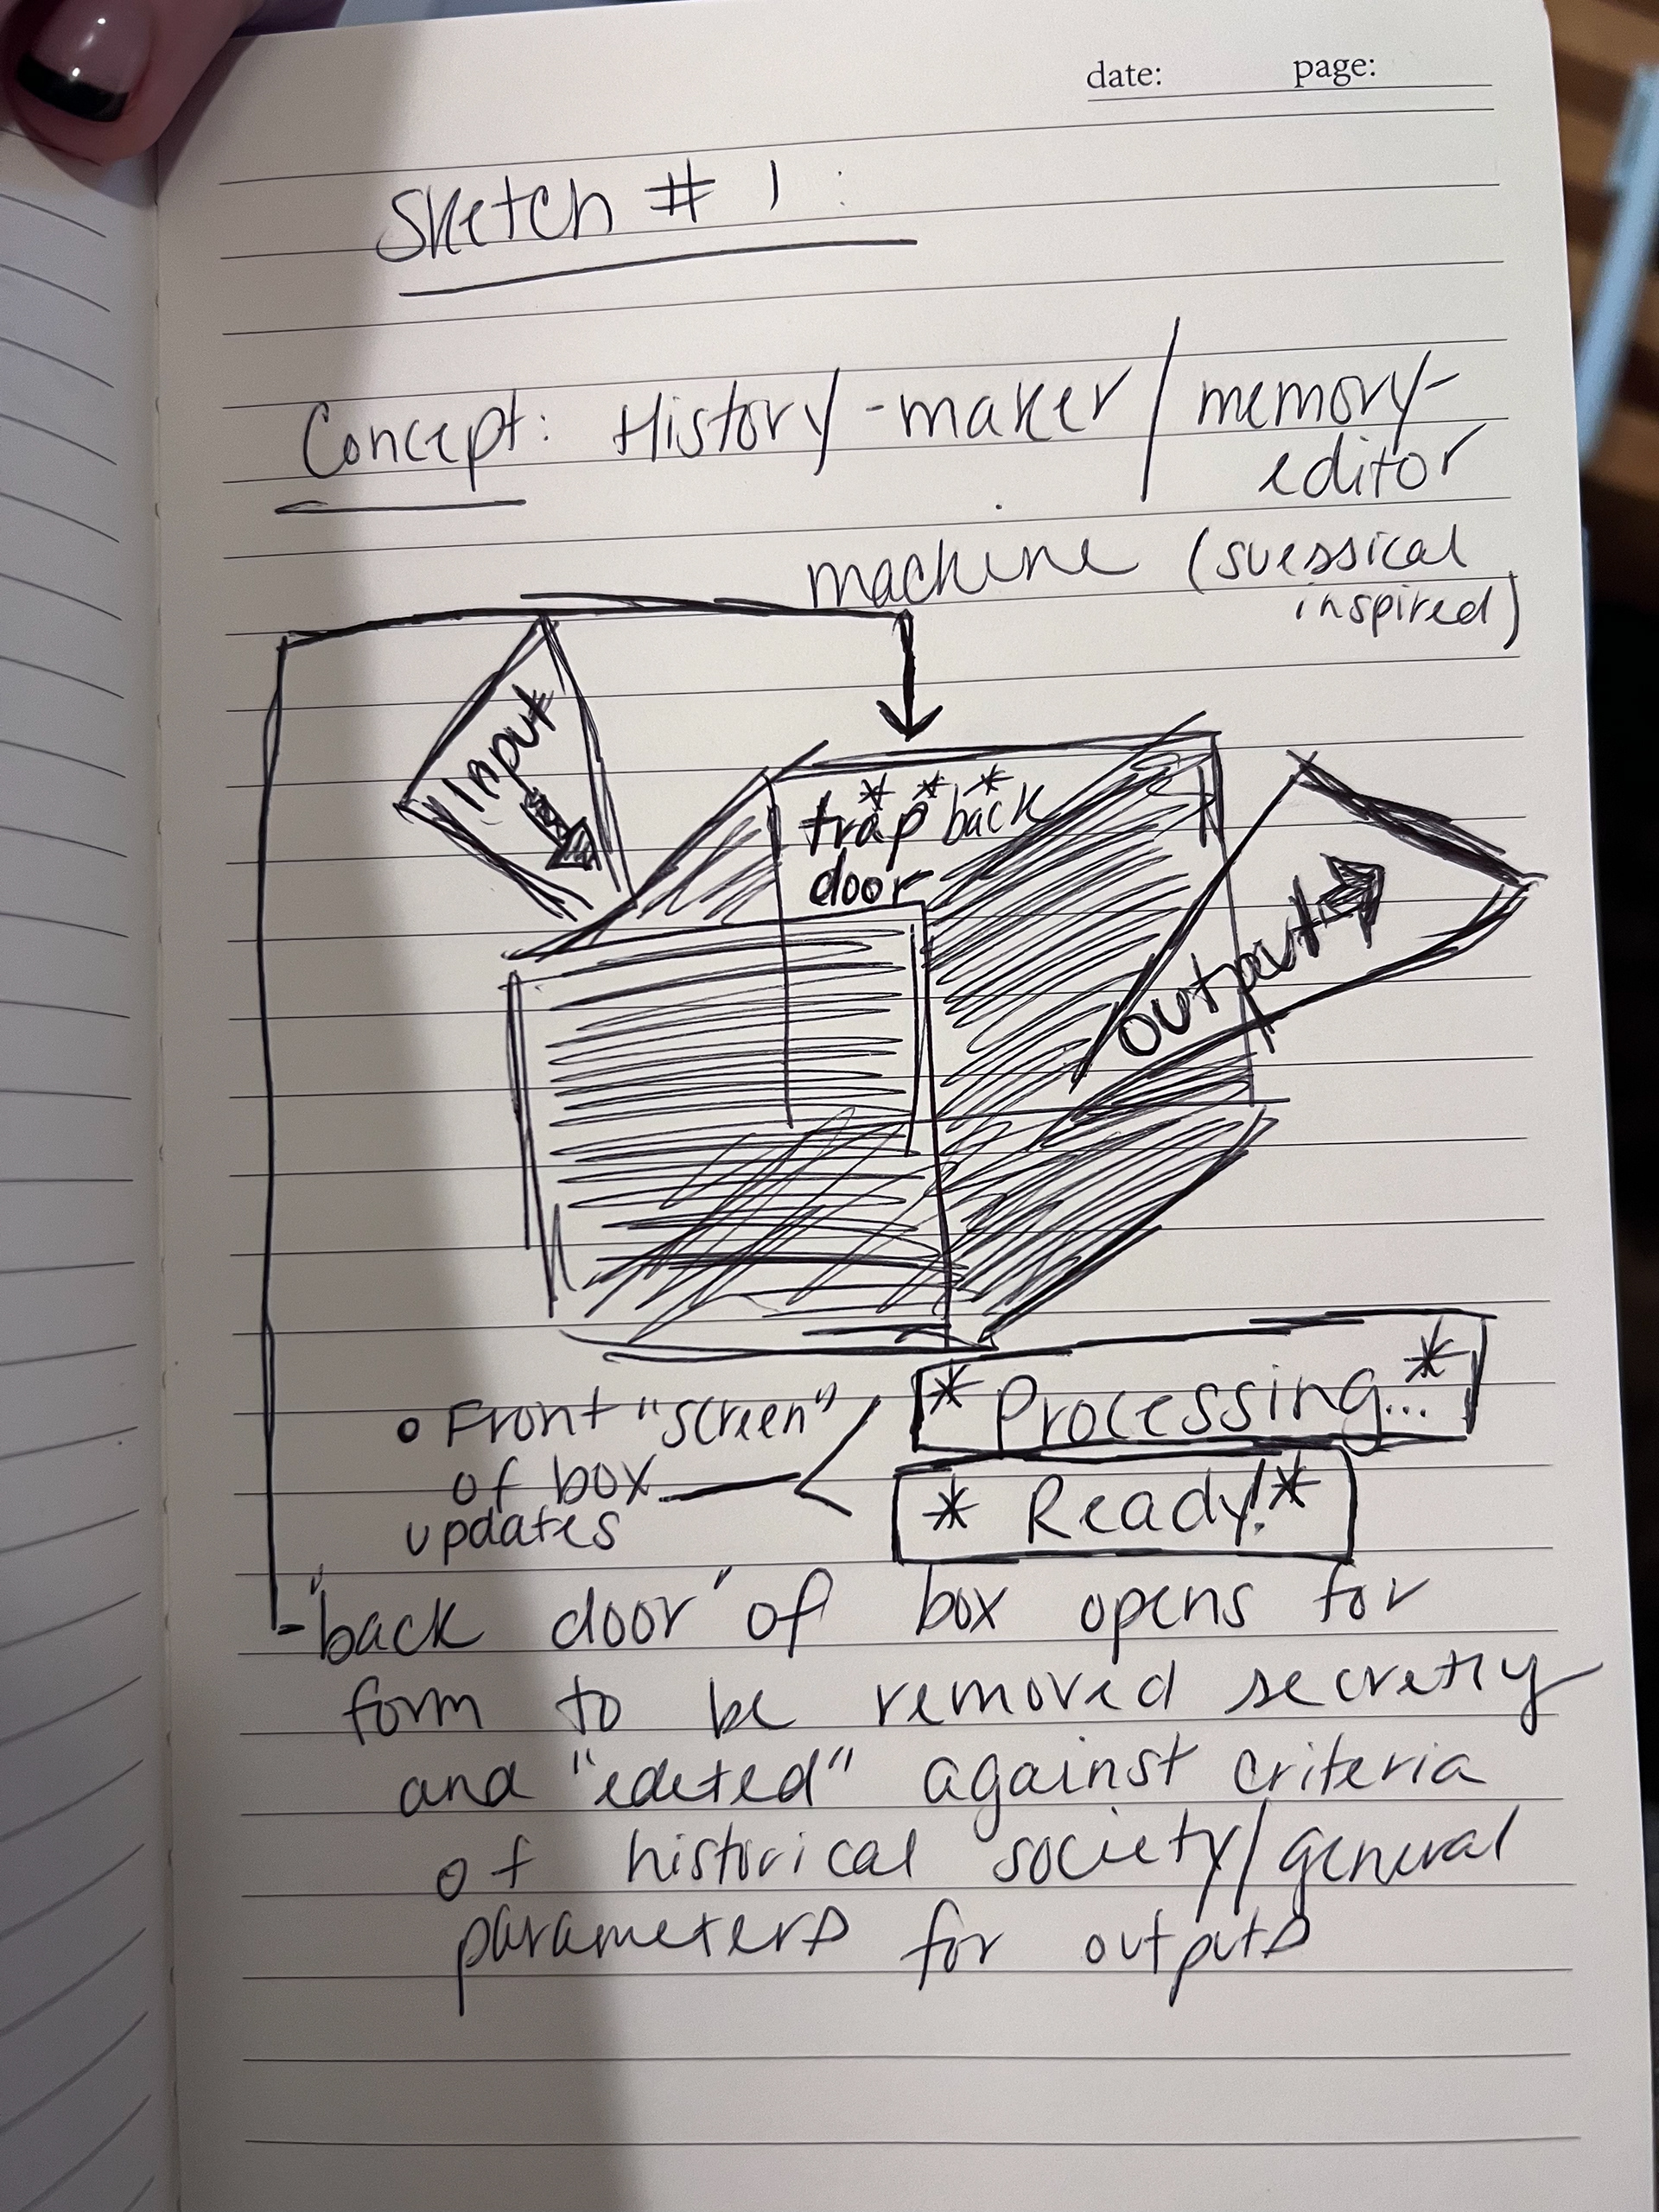 date: page:
Sketch # 1 :
Concept: History-maker/memory-
editor
machine (suessical
inspired)
Input
* * *
trap back
door
output
• Front "screen"
of box
updates
* Processing... *
* Ready! *
- "back door" of box opens for
form to be removed secretly
and "edeted" against criteria
of historical society/general
parameters for outputs